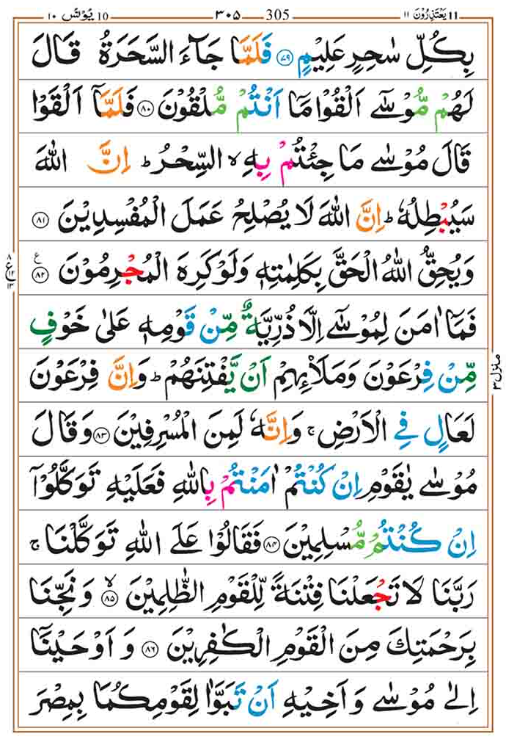 يَعْتَذِرُوْنَ ١١ 11 ٣٠٥ 305 يُوْنُس ١٠ 10
بِكُلِّ سٰحِرٍ عَلِيْمٍ ﴿٧٩﴾ فَلَمَّا جَآءَ السَّحَرَةُ قَالَ
لَهُمْ مُّوْسٰٓى اَلْقُوْا مَاۤ اَنْتُمْ مُّلْقُوْنَ ﴿٨٠﴾ فَلَمَّاۤ اَلْقَوْا
قَالَ مُوْسٰى مَا جِئْتُمْ بِهِ ۙ السِّحْرُ ؕ اِنَّ اللّٰهَ
سَيُبْطِلُهٗ ؕ اِنَّ اللّٰهَ لَا يُصْلِحُ عَمَلَ الْمُفْسِدِيْنَ ﴿٨١﴾
وَيُحِقُّ اللّٰهُ الْحَقَّ بِكَلِمٰتِهٖ وَلَوْ كَرِهَ الْمُجْرِمُوْنَ ﴿٨٢﴾ ع
فَمَاۤ اٰمَنَ لِمُوْسٰٓى اِلَّا ذُرِّيَّةٌ مِّنْ قَوْمِهٖ عَلٰى خَوْفٍ
مِّنْ فِرْعَوْنَ وَمَلَا۟ئِهِمْ اَنْ يَّفْتِنَهُمْ ؕ وَاِنَّ فِرْعَوْنَ
لَعَالٍ فِى الْاَرْضِ ۚ وَاِنَّهٗ لَمِنَ الْمُسْرِفِيْنَ ﴿٨٣﴾ وَقَالَ
مُوْسٰى يٰقَوْمِ اِنْ كُنْتُمْ اٰمَنْتُمْ بِاللّٰهِ فَعَلَيْهِ تَوَكَّلُوْۤا
اِنْ كُنْتُمْ مُّسْلِمِيْنَ ﴿٨٤﴾ فَقَالُوْا عَلَى اللّٰهِ تَوَكَّلْنَا ۚ
رَبَّنَا لَا تَجْعَلْنَا فِتْنَةً لِّلْقَوْمِ الظّٰلِمِيْنَ ۙ ﴿٨٥﴾ وَنَجِّنَا
بِرَحْمَتِكَ مِنَ الْقَوْمِ الْكٰفِرِيْنَ ﴿٨٦﴾ وَاَوْحَيْنَاۤ
اِلٰى مُوْسٰى وَاَخِيْهِ اَنْ تَبَوَّاٰ لِقَوْمِكُمَا بِمِصْرَ
منزل ٣